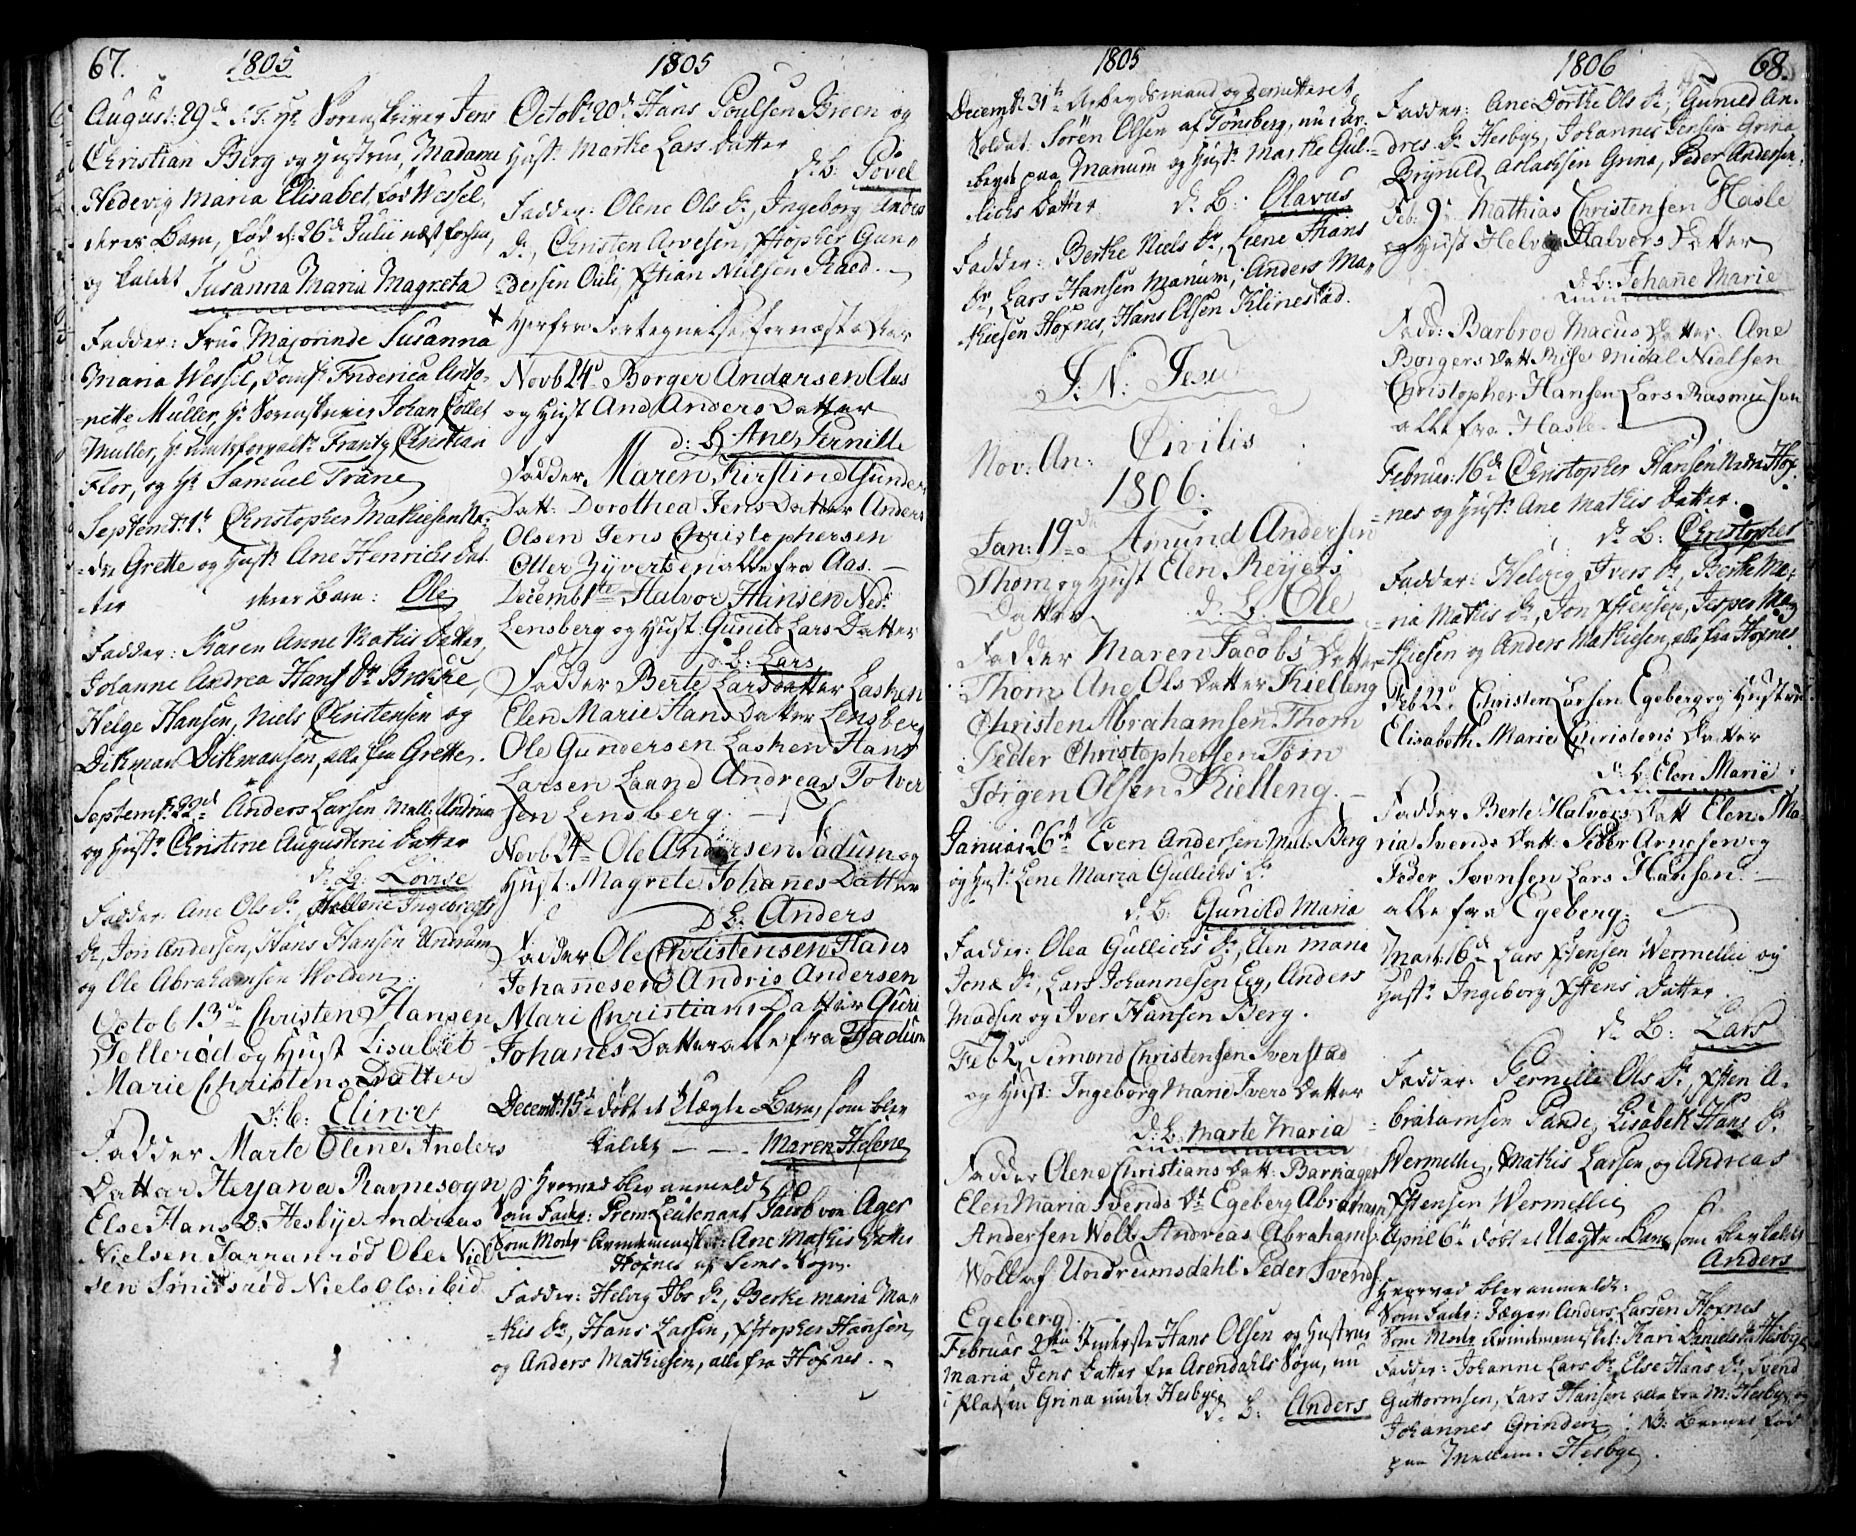 67. 1805
August: 29de S:T: Hr Sorenskriver Jens
Christian Berg og Hustrue, Madame
Hedevig Maria Elisabet, fød Wessel,
deres Barn, fød d: 26de Julii næst forhen,
og kaldet Susanna Maria Magreta
Fadder: Frue Majorinde Susanna
Maria Wessel, Jomfr Friderica Anto-
nette Muller, Hr Sorenskriver Johan Collet
Muller, Hr Frantz Christian
Flor, og Hr Samuel Trane
Septembr 1ste Christopher Mathiesen Ne-
den Grette og Hustr: Ane Henrichs Dat-
ter deres Barn: Ole
Fadder: Karen Anne Mathis Datter,
Johanne Andrea Hans Dr Brekke,
Helge Hansen, Niels Christensen og
Dikman Dikmansen, alle fra Grette.
Septembr: 22de Anders Larsen Mell: Undrum
og Hustr Christine Augustini Datter
d: B: Lovise
Fadder: Ane Ols Dr, Hellene Ingebregts
Dr, Jon Andersen, Hans Hansen Undrum
og Ole Abrahamsen Wolden
Octob 13de Christen Hansen
Jellerød og Hust Lisabet
Marie Christens Datter
D: b: Eline
Fadder Marte Oline Anders
Datter Heyana Ramnesogn
Else Hans D: Hesbye Andreas
Nielsen Tarranrød Ole Niel
sen Smidsrød Niels Ols: ibid
1805
Octobr 20de Hans Poulsen Breen og
Hustr: Marthe Lars Datter
d: b: Povel
Fadder: Olene Ols Dr, Ingeborg Anders
Dr, Christen Arvesen, Xstopher Gun-
dersen Ouli, Xtian Nielsen
Herfra Fortegnelse for næste Aar
Novb 24de Borger Andersen Aas
og Hust Ane Anders Datter
d: B: Ane Pernille
Fadder Maren Kirstine Gunder
Datt: Dorothea Jens Datter Anders
Olsen Jens Christophersen
Otter Zyvertsen alle fra Aas.
Decemb 1ste Halvor Hansen Ned:
Lensberg og Hust: Gunild Lars Datter
d: B: Lars
Fadder Berte Larsdatter Lasken
Elen Marie Hans Datter Lensberg
Ole Gundersen Lasken Hans
Larsen Laane Andreas Tolver
sen Lensberg.
Novb 24de Ole Andersen Fadum og
Hust: Magrete Johannes Datter
D B: Anders
Fadder Ole Christensen Hans
Johannesen Andris Andersen
Mari Christians Datter Guri
Johanes Datter alle fra Fadum
Decembr: 15de døbt et Uægte Barn, som blev
kaldet - - - Maren Helene
Hvorved blev anmeldt
Som Fader: Prem: Lieutenant Jacob von Ager
Som Moder Ane Mathis Datter
Hofnes af Sems Sogn.
Fadder: Helvig Ibs Dr, Berthe Maria Ma-
this Dr, Hans Larsen, Xstopher Hansen,
og Anders Mathiesen, alle fra Hofnes.
1805
Decembr 31te Arbeydsmand og permitteret
Soldat Søren Olsen af Tønsberg, nu i Ar-
beyde paa Manum og Hustr: Marthe Gul-
lichs Datter d: B: Olavus
Fadder: Berthe Niels Dr, Leene Hans
Dr, Lars Hansen Manum, Anders Ma-
thiesen Hofnes, Hans Olsen Klinestad.
J: N: Jesu
Nov: An: Civilis
1806.
Jan: 19de Amund Andersen
Thom og Hust Elen Reyers
Datter d: B: Ole
Fadder Maren Jacobs Datter
Thom Ane Ols Datter Kielleng
Christen Abrahamsen Thom
Peder Christophersen Tom
Jørgen Olsen Kielleng.
Januar: 26de Even Andersen Mell: Berg
og Hustr: Lene Maria Gullichs Dr
d: B: Gunild Maria
Fadder: Olea Gullichs Dr, Elen Maria
Jonæ Dr, Lars Johannesen Eeg, Anders
Madsen og Iver Hansen Berg.
Feb 2de Simond Christensen Iverstad
og Hust: Ingeborg Marie Ivers Datter
D: B: Marte Maria
Fadder Olene Christians Datt: Barnager
Elen Maria Svends Dr Egeberg Abraham
Andersen Woll Andreas Abrahams:
Woll af Undrumsdahl Peder Svends
Egeberg
Februar 2den Inderste Hans Olsen og Hustrue
Maria Jens Datter fra Arendahls Sogn, nu
i Pladsen Grina under Hesbye
d: B: Anders
1806 68.
Fadder: Ane Dorthe Ols Dr, Gunild An-
dres Dr Hesbye, Johannes Jensen Grina
Brynild Aslachsen Grina, Peder Andersen.
Feb: 9de Mathias Christensen Hasle
og Hust Helvig Halvors Datter
d: b: Johanne Marie
Fadd: Barbroe Macus Datter Ane
Borgers Datt Rise Nielsen
Christopher Hansen Lars Rasmusen
alle fra Hasle
Februar: 16de Christopher Hansen Nedre Hof-
nes og Hustr: Ane Mathis Datter.
d: B: Christopher
Fadder: Helvig Ivers Dr, Berthe Ma-
ria Mathis Dr, Jon Xstensen, Jesper Ma-
thiesen og Anders Mathiesen, alle fra Hofnes.
Feb 22de Christen Larsen Egeberg og Hustrue
Elisabeth Marie Christens Datter
d: b: Elen Marie
Fadder Berte Halvors Datt Elen Ma-
ria Svends Datt: Peder Arnesen og
Peder Svensen Lars Hansen
alle fra Egeberg
Mart: 16de Lars Xstensen Wermellie og
Hustr Ingeborg Xstens Datter
d: B: Lars
Fadder: Pernille Ols Dr, Xsten A-
brahamsen Lisabeth Hans Dr
Wermellie, Mathis Larsen og Andreas
Xstensen Wermellie
April 6te døbt et Uægte Barn, som blev kaldet
Anders
Hvorved blev anmeldt:
Som Fader: Jæger Anders Larsen Hofnes
Som Moder Kari Daniels Dr Hesbye
Fadder: Johanne Lars Dr, Else Hans Dr, Svend
Guttormsen, Lars Hansen alle fra M: Hesbye og
Johannes Grinden NB: Barnet fød
paa Mellem Hesbye.